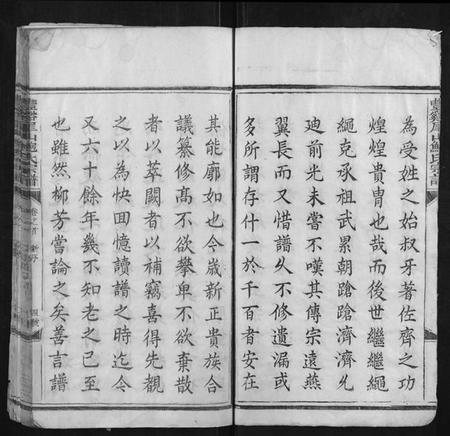 為受姓之始叔牙著佐齊之功
煌煌貴冑也哉而後世繼繼繩
繩克承祖武累朝蹌蹌濟濟允
廸前光未嘗不嘆其傳宗遠燕
翼長而又惜譜乆不修遺漏或
多所謂存什一於千百者安在
其能廓如也今歲新正貴族合
議纂修髙不欲攀卑不欲棄散
者以萃闕者以補竊喜得先覩
之以為快囬憶讀譜之時迄今
又六十餘年幾不知老之已至
也雖然柳芳嘗論之矣善言譜
鮑氏宗譜
卷之首
新序